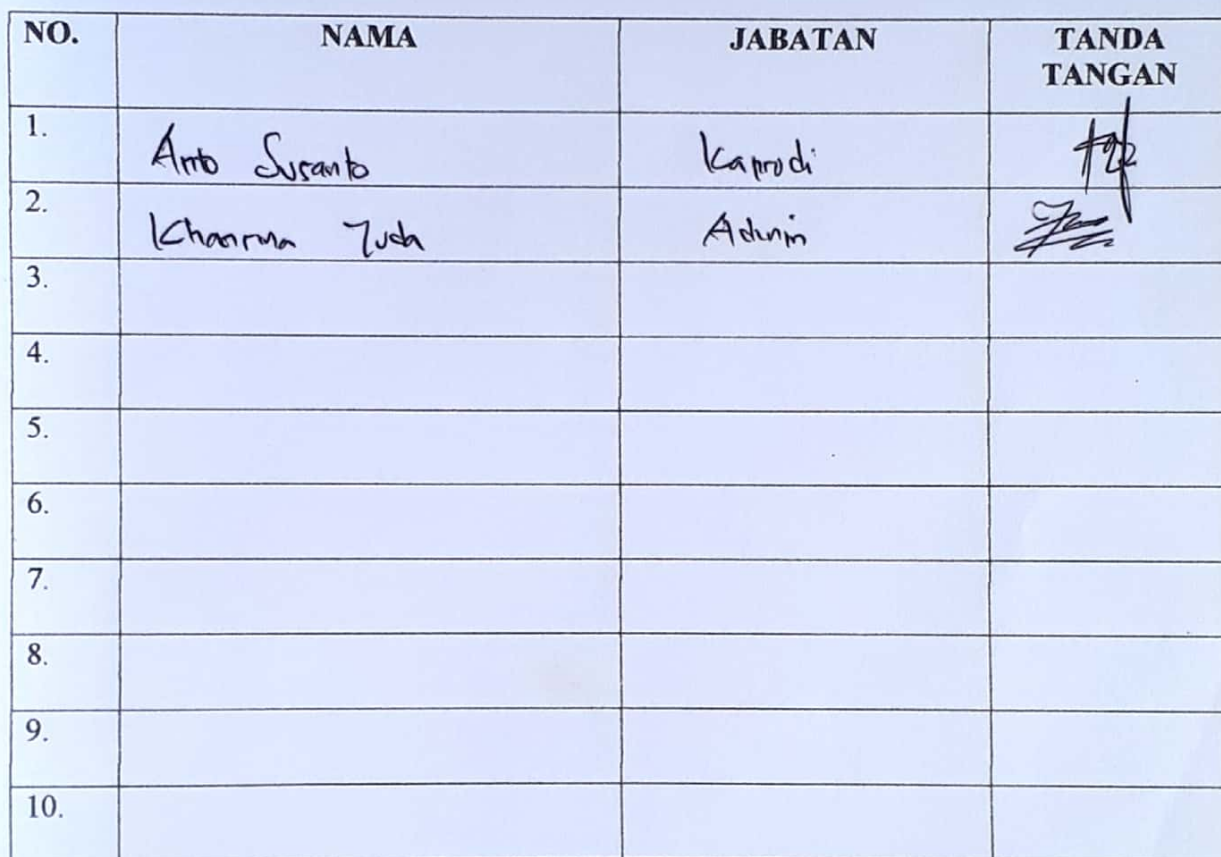 NO. NAMA JABATAN TANDA TANGAN
1. Anto Susanto Kaprodi
2. Yuda Admin
3.
4.
5.
6.
7.
8.
9.
10.